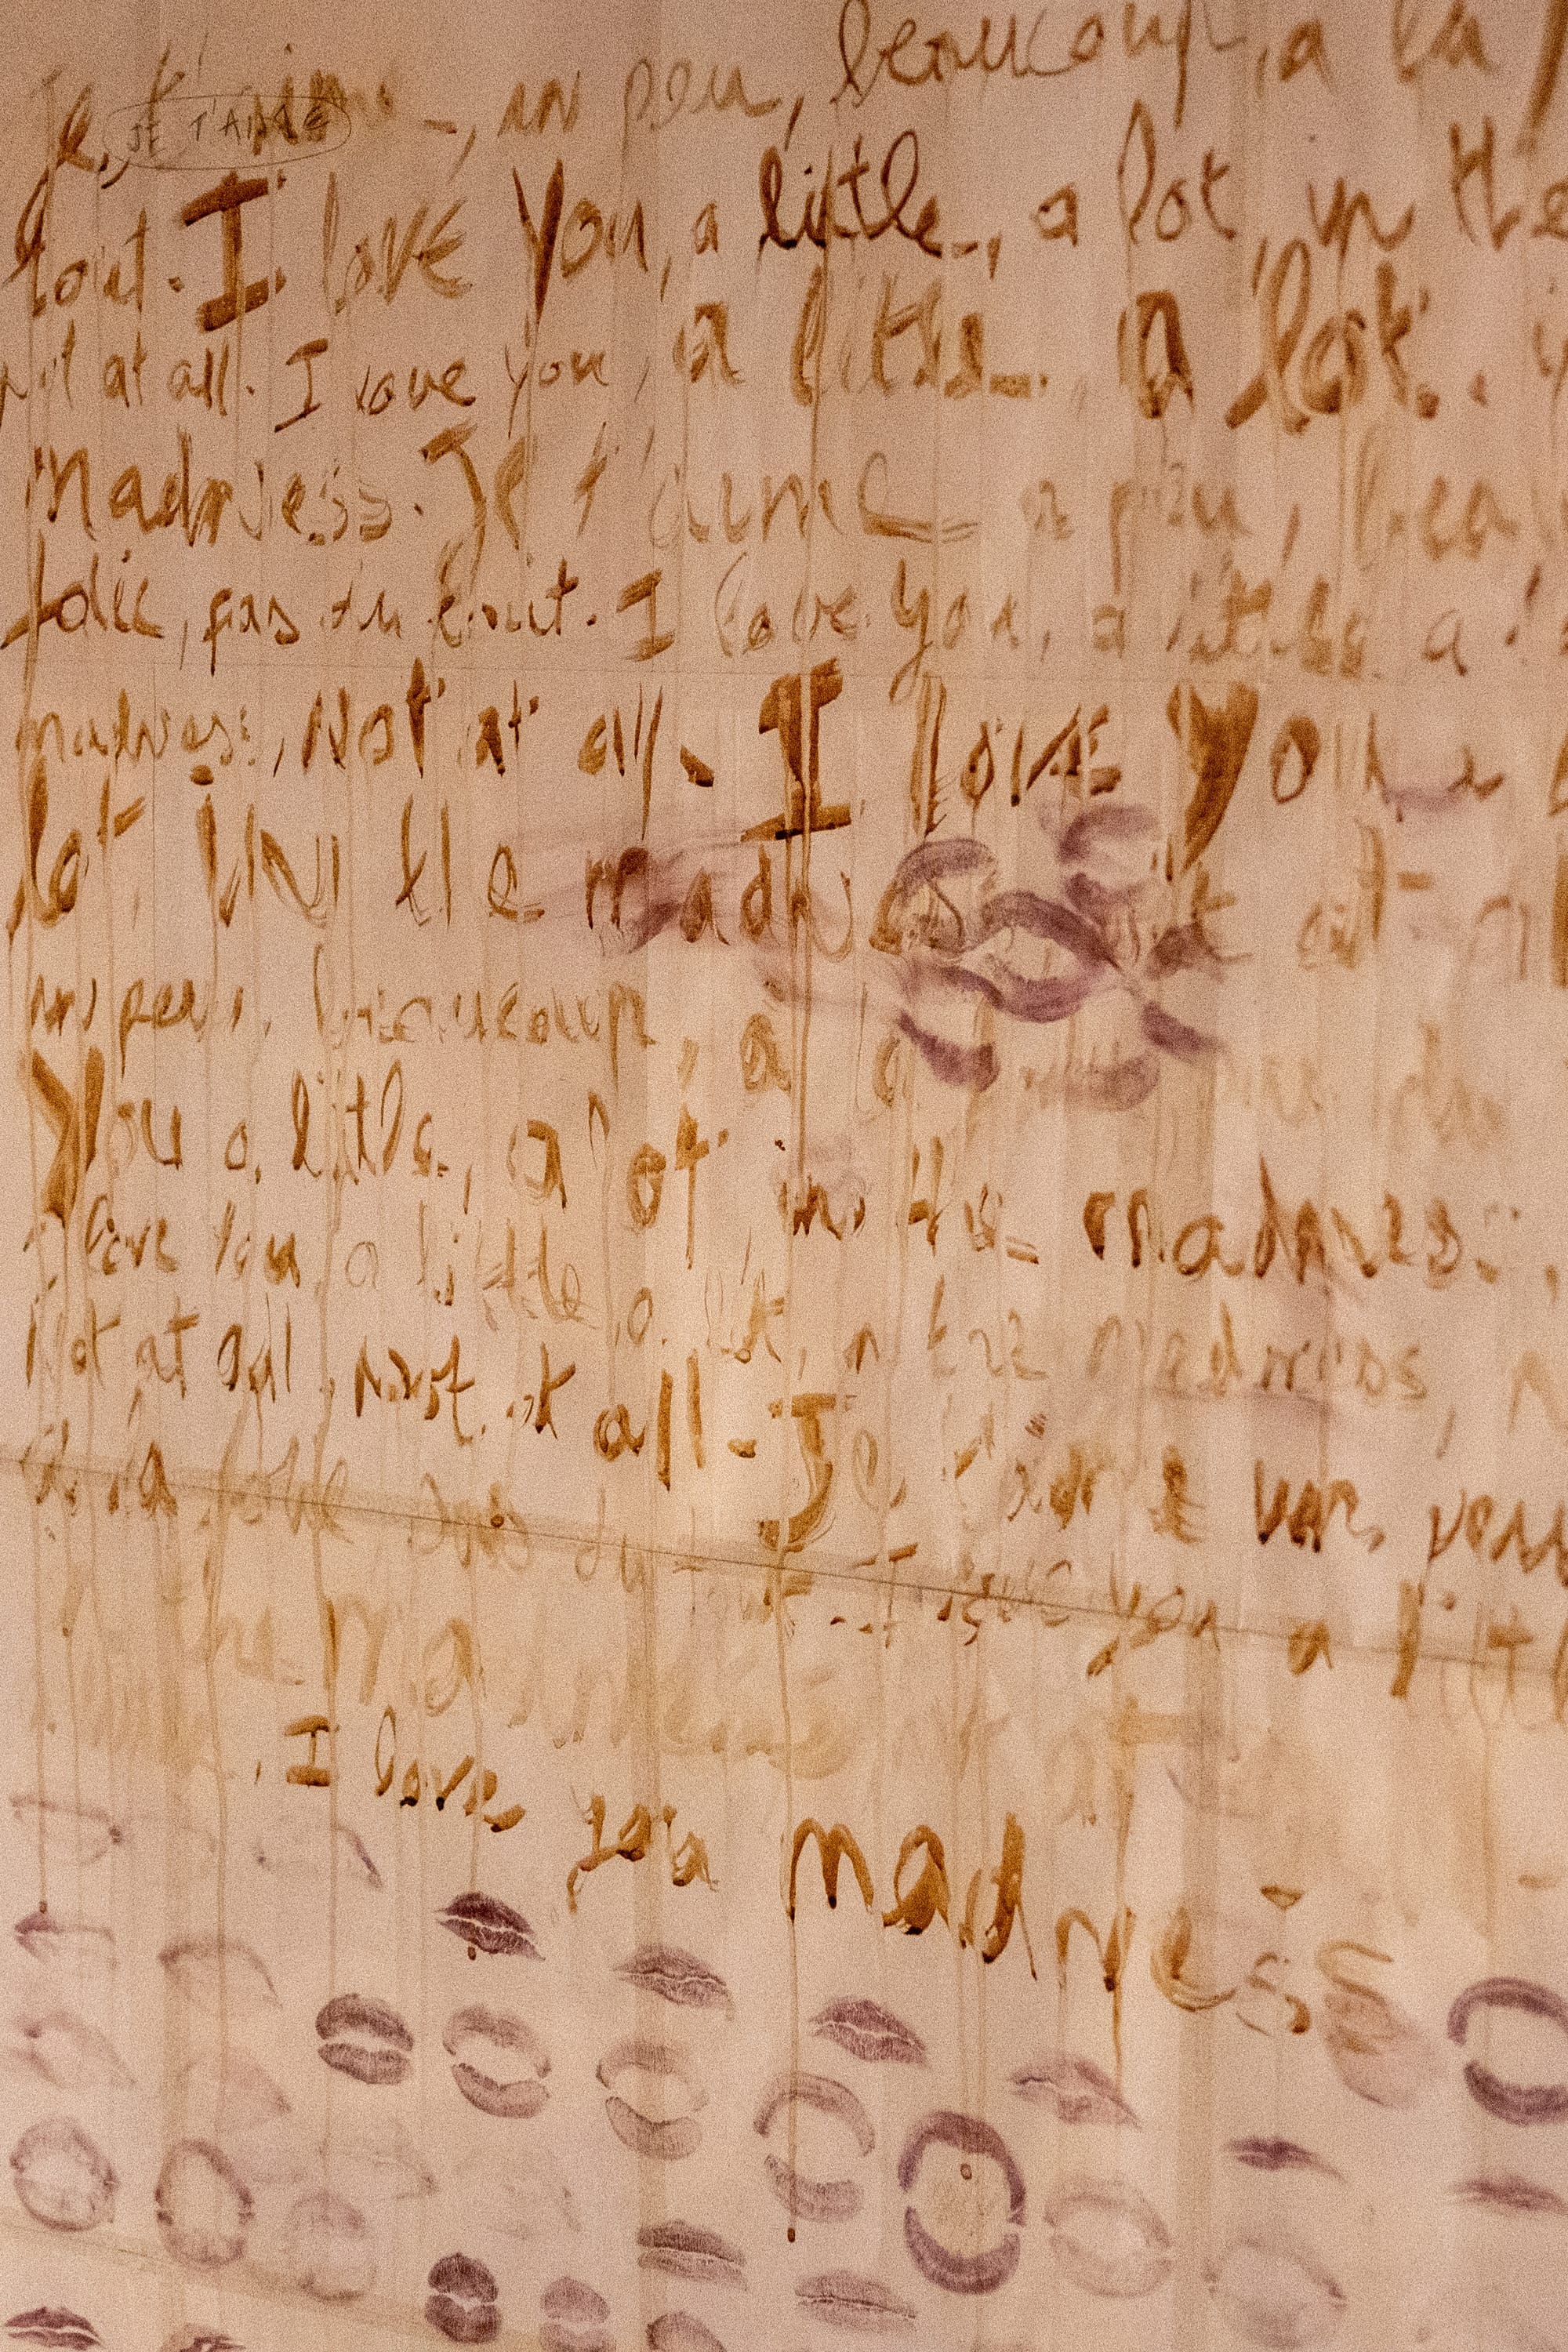 Je t'aime, un peu, beaucoup, a la
JE T'AIME
tout. I love You, a little, a lot, in the
not at all. I love you, a little, a lot.
madness. Je t'aime un peu, beau
folie, pas du tout. I love you, a little a
madness, Not at all. I love You a
lot in the madn at all
un peu, beaucoup, a la
You a little, a lot in the madness,
love You a little, a lot, in the madness,
Not at all, Not at all. Je t'aime un peu
a la folie pas du tout. I love you a littl
madness
I love you madness